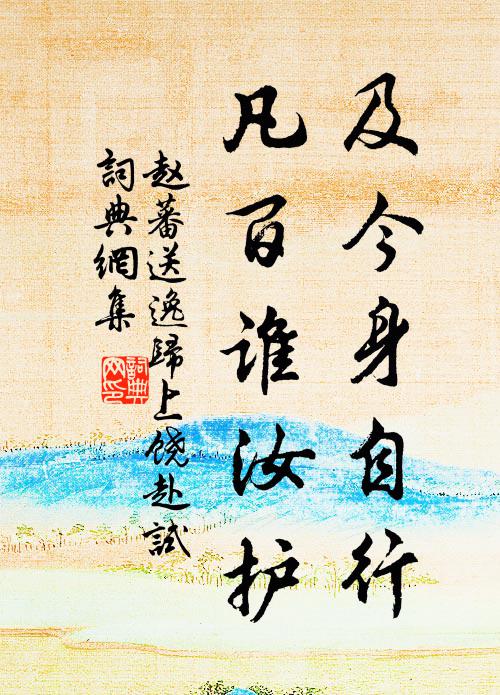 及今身自行
凡百谁汝护
赵蕃送逸歸上饶赴試
詞典網集
詞典
网印